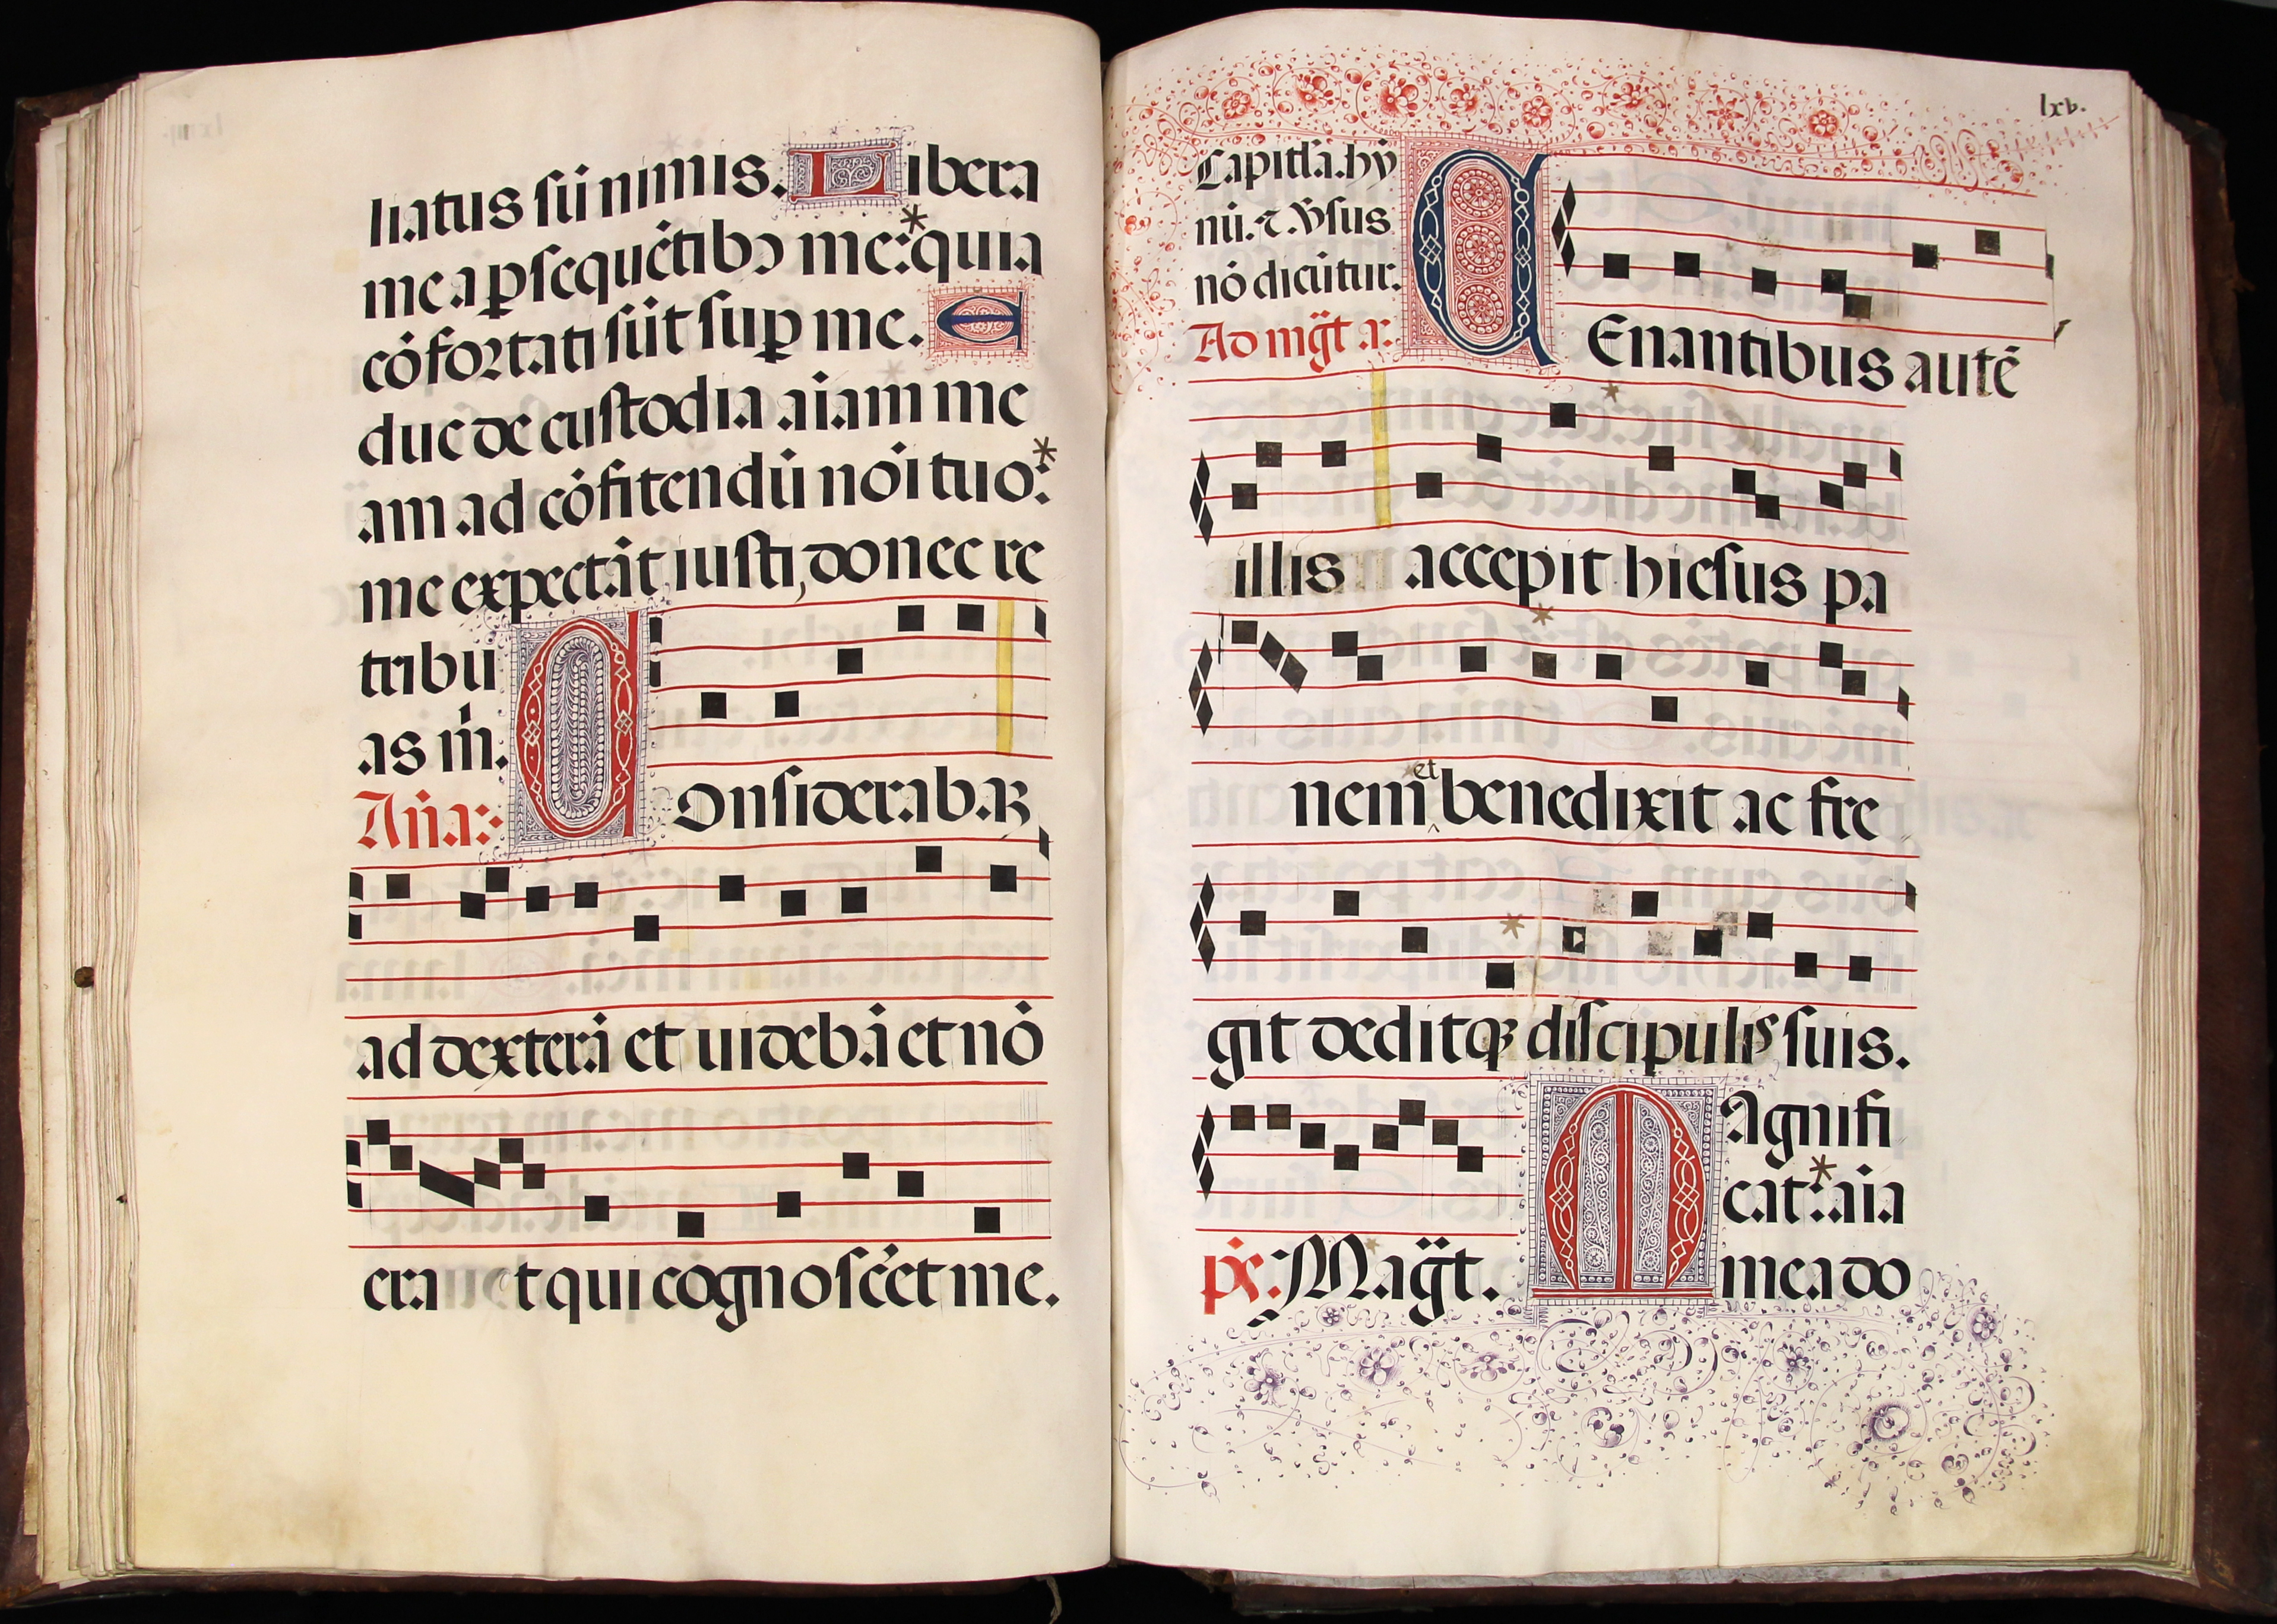 liatus sū nimis. Libera
me a ꝑsequētibꝰ me:* quia
cōfortati sūt suꝑ me. E
duc de custodia aīam me
am ad cōfitendū nōi tuo:*
me expectāt iusti, donec re
tribu
as m̄.
Añа: Considerabaꝫ
ad dexterā et uidebā et nō
erat qui cōgnoscēt me.
lxv.
Capitl'a. hy̅
nū. ⁊ v̅sus
nō dicūtur.
Ad mḡt a. Cenantibus autē
illis accepit hiesus pa
nem et benedixit ac fre
git deditqꝫ discipulis suis.
Magnifi
cat:* aīa
p̄s: Mag̅t. mea do